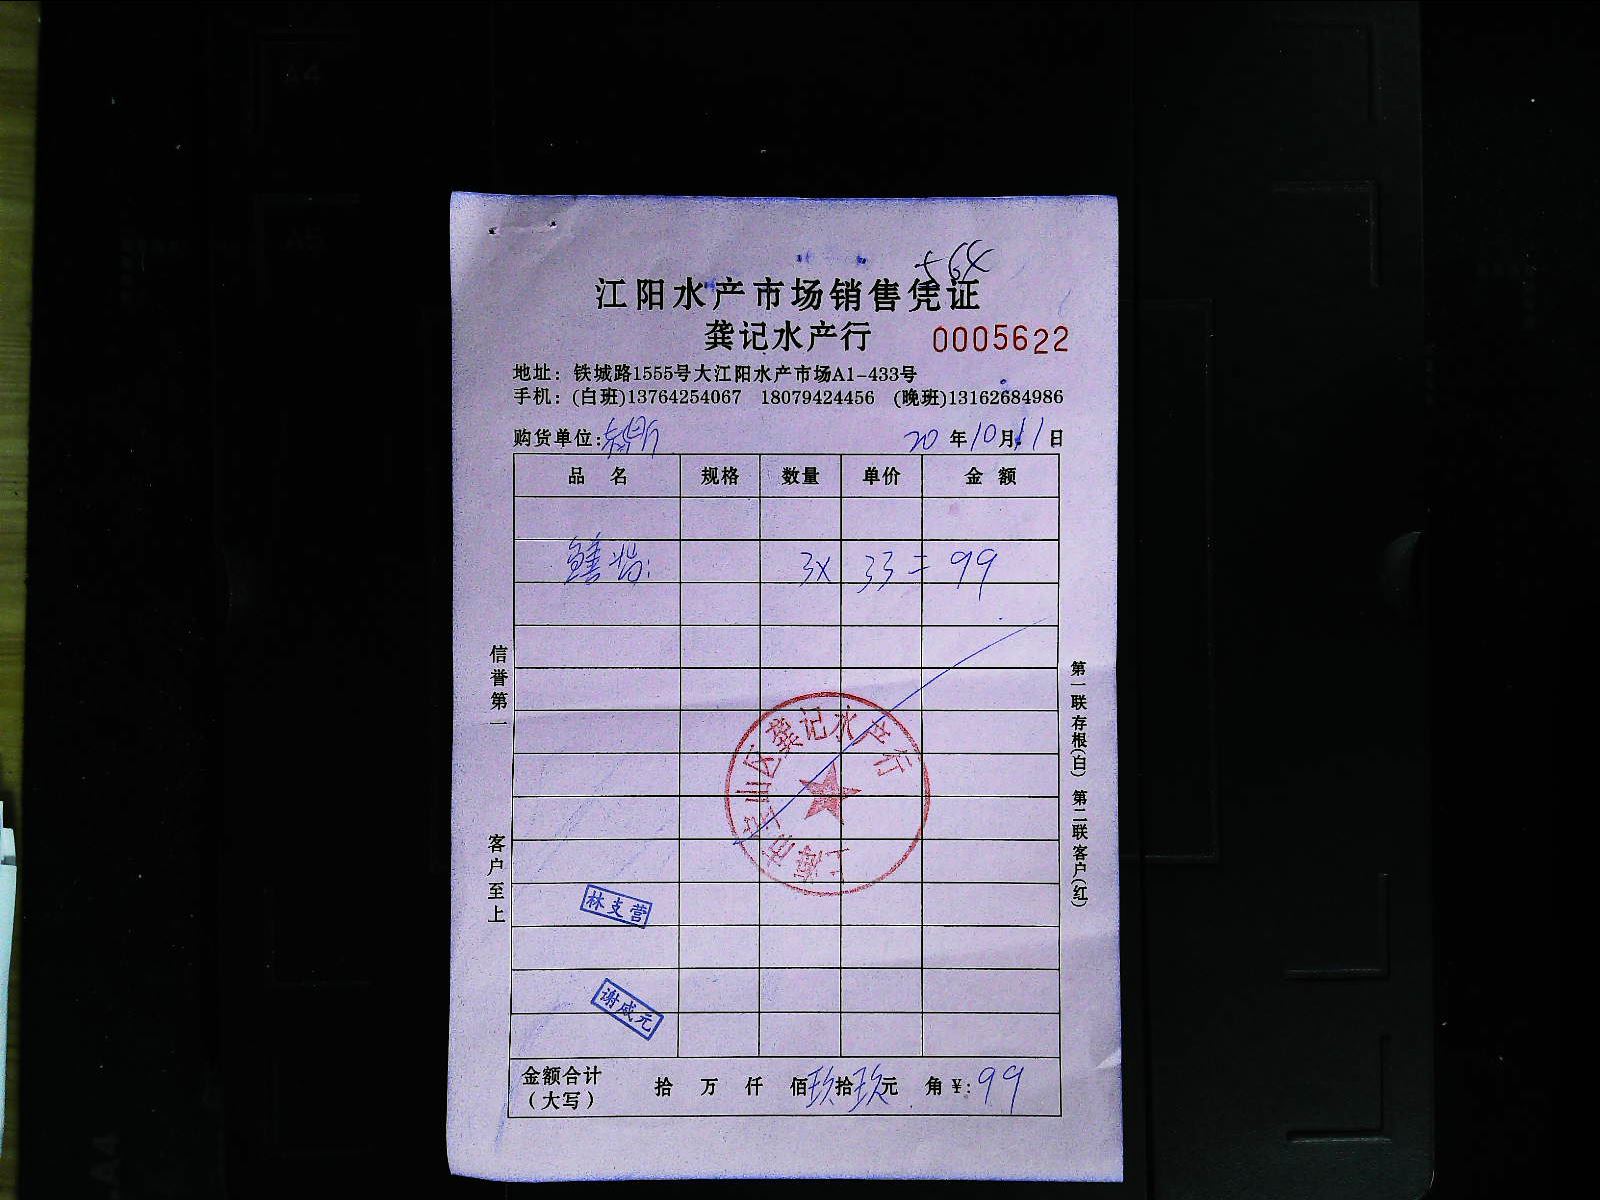 564
江阳水产市场销售凭证
龚记水产行 0005622
地址：铁城路1555号大江阳水产市场A1-433号
手机：(白班)13764254067 18079424456 (晚班)13162684986
购货单位: 20年10月11日
品 名 规格 数量 单价 金 额
鳝 3x 33 = 99
信誉第一
客户至上
第一联存根(白) 第二联客户(红)
上海市宝山区龚记水产行
林支营
谢成元
金额合计 拾 万 仟 佰玖拾玖元 角 ¥:99
（大写）